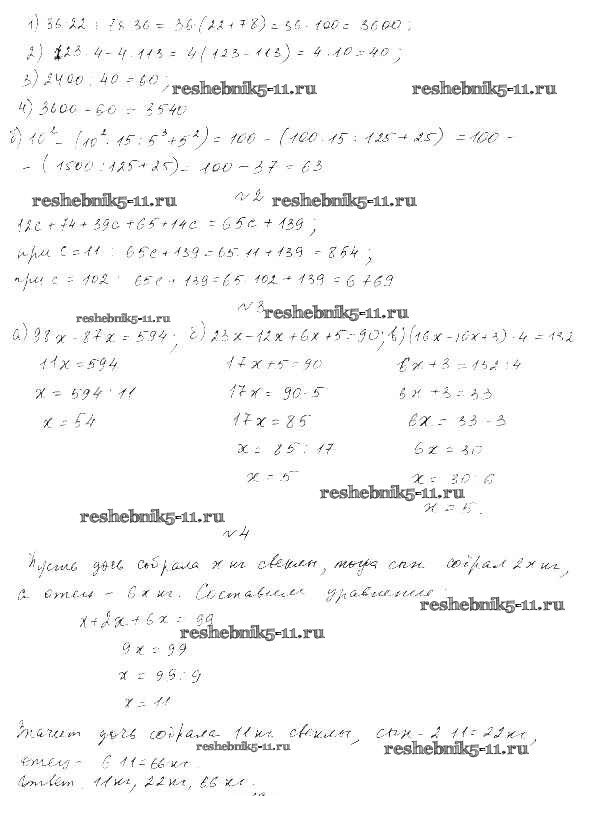 1) 36·22 + 78·36 = 36·(22+78) = 36·100 = 3600;
2) 123·4-4·113 = 4(123-113) = 4·10 = 40;
3) 2400 : 40 = 60;
reshebnik5-11.ru reshebnik5-11.ru
4) 3600 - 60 = 3540
б) 10² - (10²·15:5³+5²) = 100 - (100·15:125+25) = 100 -
- (1500:125+25) = 100 - 37 = 63
reshebnik5-11.ru №2 reshebnik5-11.ru
12c+74+39c+65+14c = 65c+139;
при c=11: 65c+139=65·11+139=854;
при c=102: 65c+139=65·102+139=6769
№3 reshebnik5-11.ru
reshebnik5-11.ru
а) 98x-87x=594; б) 23x-12x+6x+5=90; в) (16x-10x+3)·4=132
11x=594 17x+5=90 6x+3=132:4
x=594:11 17x=90-5 6x+3=33
x=54 17x=85 6x=33-3
x=85:17 6x=30
x=5 x=30:6
reshebnik5-11.ru
x=5.
reshebnik5-11.ru
№4
Пусть дочь собрала x кг свеклы, тогда сын собрал 2x кг,
а отец - 6x кг. Составим уравнение:
reshebnik5-11.ru
x+2x+6x=99
reshebnik5-11.ru
9x=99
x=99:9
x=11
Значит дочь собрала 11 кг свеклы, сын - 2·11=22 кг,
reshebnik5-11.ru reshebnik5-11.ru
отец - 6·11=66 кг.
Ответ: 11 кг, 22 кг, 66 кг.